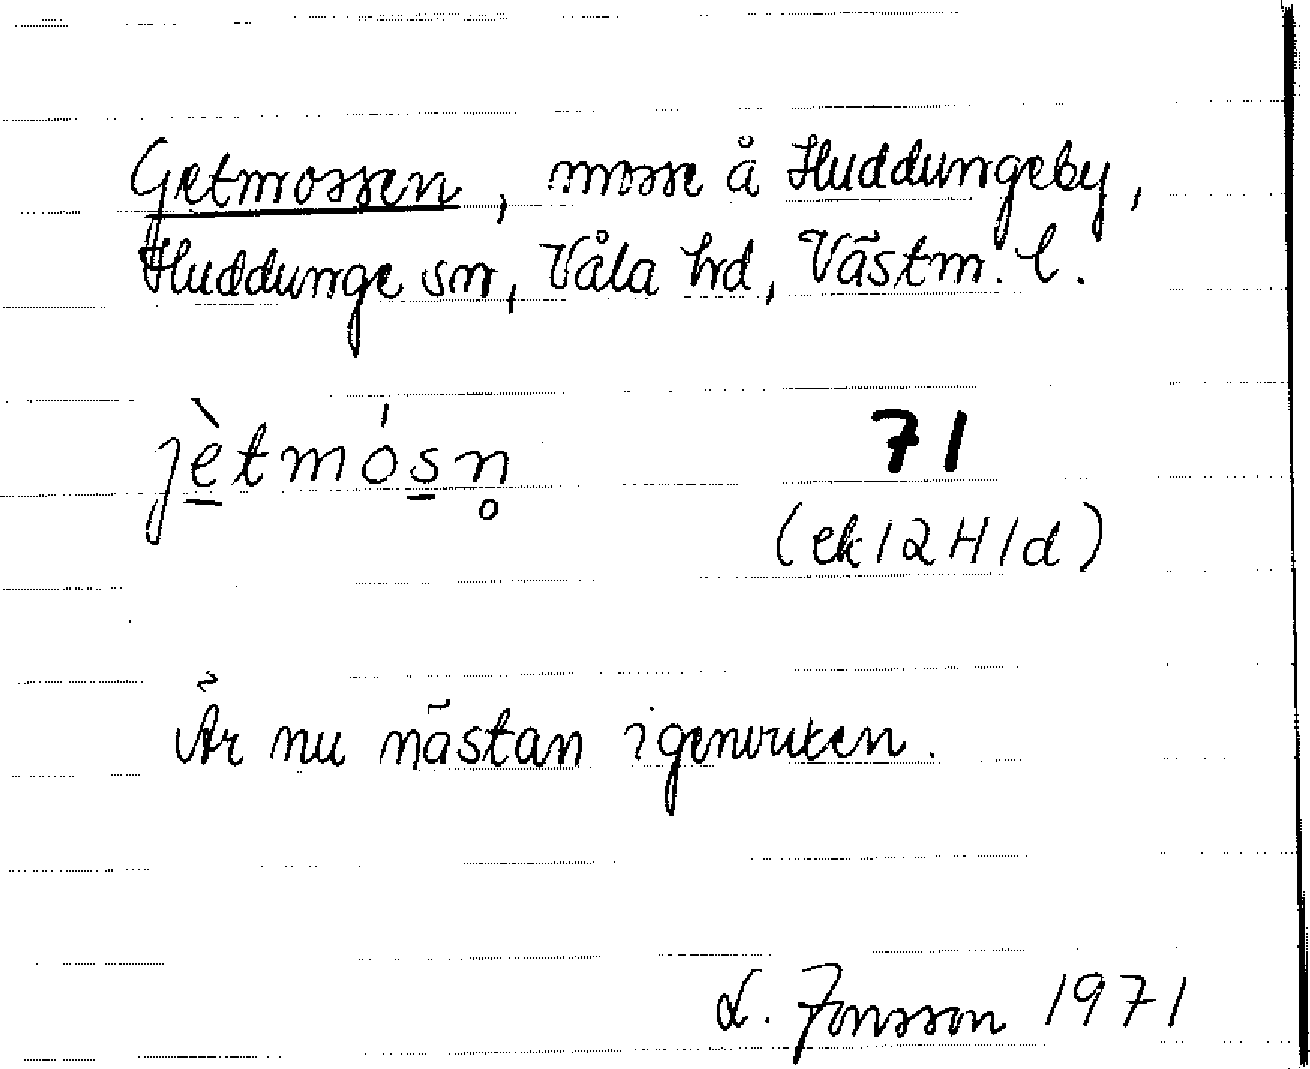 Getmossen, mosse å Huddungeby,
Huddunge sn, Våla hd, Västm. l.
jè̲tmós̲n̥ 71
(ek 12 H 1d)
Är nu nästan igenvuxen.
L. Jonsson 1971